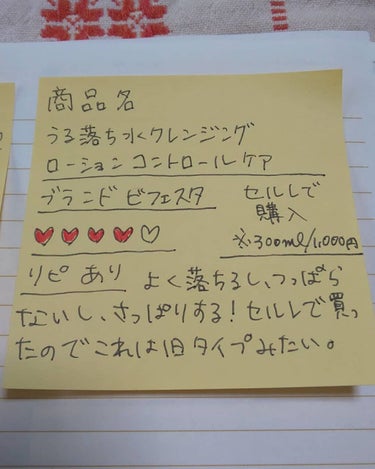 商品名
うる落ち水クレンジング
ローション コントロールケア
ブランド ビフェスタ
セルレで
購入
※300ml/1,000円
リピ あり よく落ちるし、つっぱら
ないし、さっぱりする!セルレで買っ
たのでこれは旧タイプみたい。